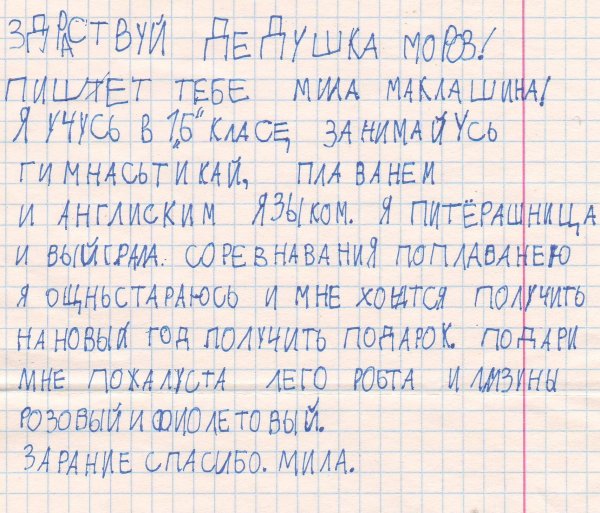 ЗДРАСТВУЙ ДЕДУШКА МОРОЗ!
ПИШЕТ ТЕБЕ МИЛА МАКЛАШИНА!
Я УЧУСЬ В 1„Б" КЛАСЕ, ЗАНИМАЙУСЬ
ГИМНАСЬТИКАЙ, ПЛАВАНЕМ
И АНГЛИСКИМ ЯЗЫКОМ. Я ПИТЁРАШНИЦА
И ВЫЙГРАЛА. СОРЕВНАВАНИЯ ПОПЛАВАНЕЮ
Я ОЩНЬСТАРАЮСЬ И МНЕ ХОЦТСЯ ПОЛУЧИТЬ
НАНОВЫЙ ГОД ПОЛУЧИТЬ ПОДАРОК. ПОДАРИ
МНЕ ПОЖАЛУСТА ЛЕГО РОБТА И ЛМЗИНЫ
РОЗОВЫЙ И ФИОЛЕТОВЫЙ.
ЗАРАНИЕ СПАСИБО. МИЛА.